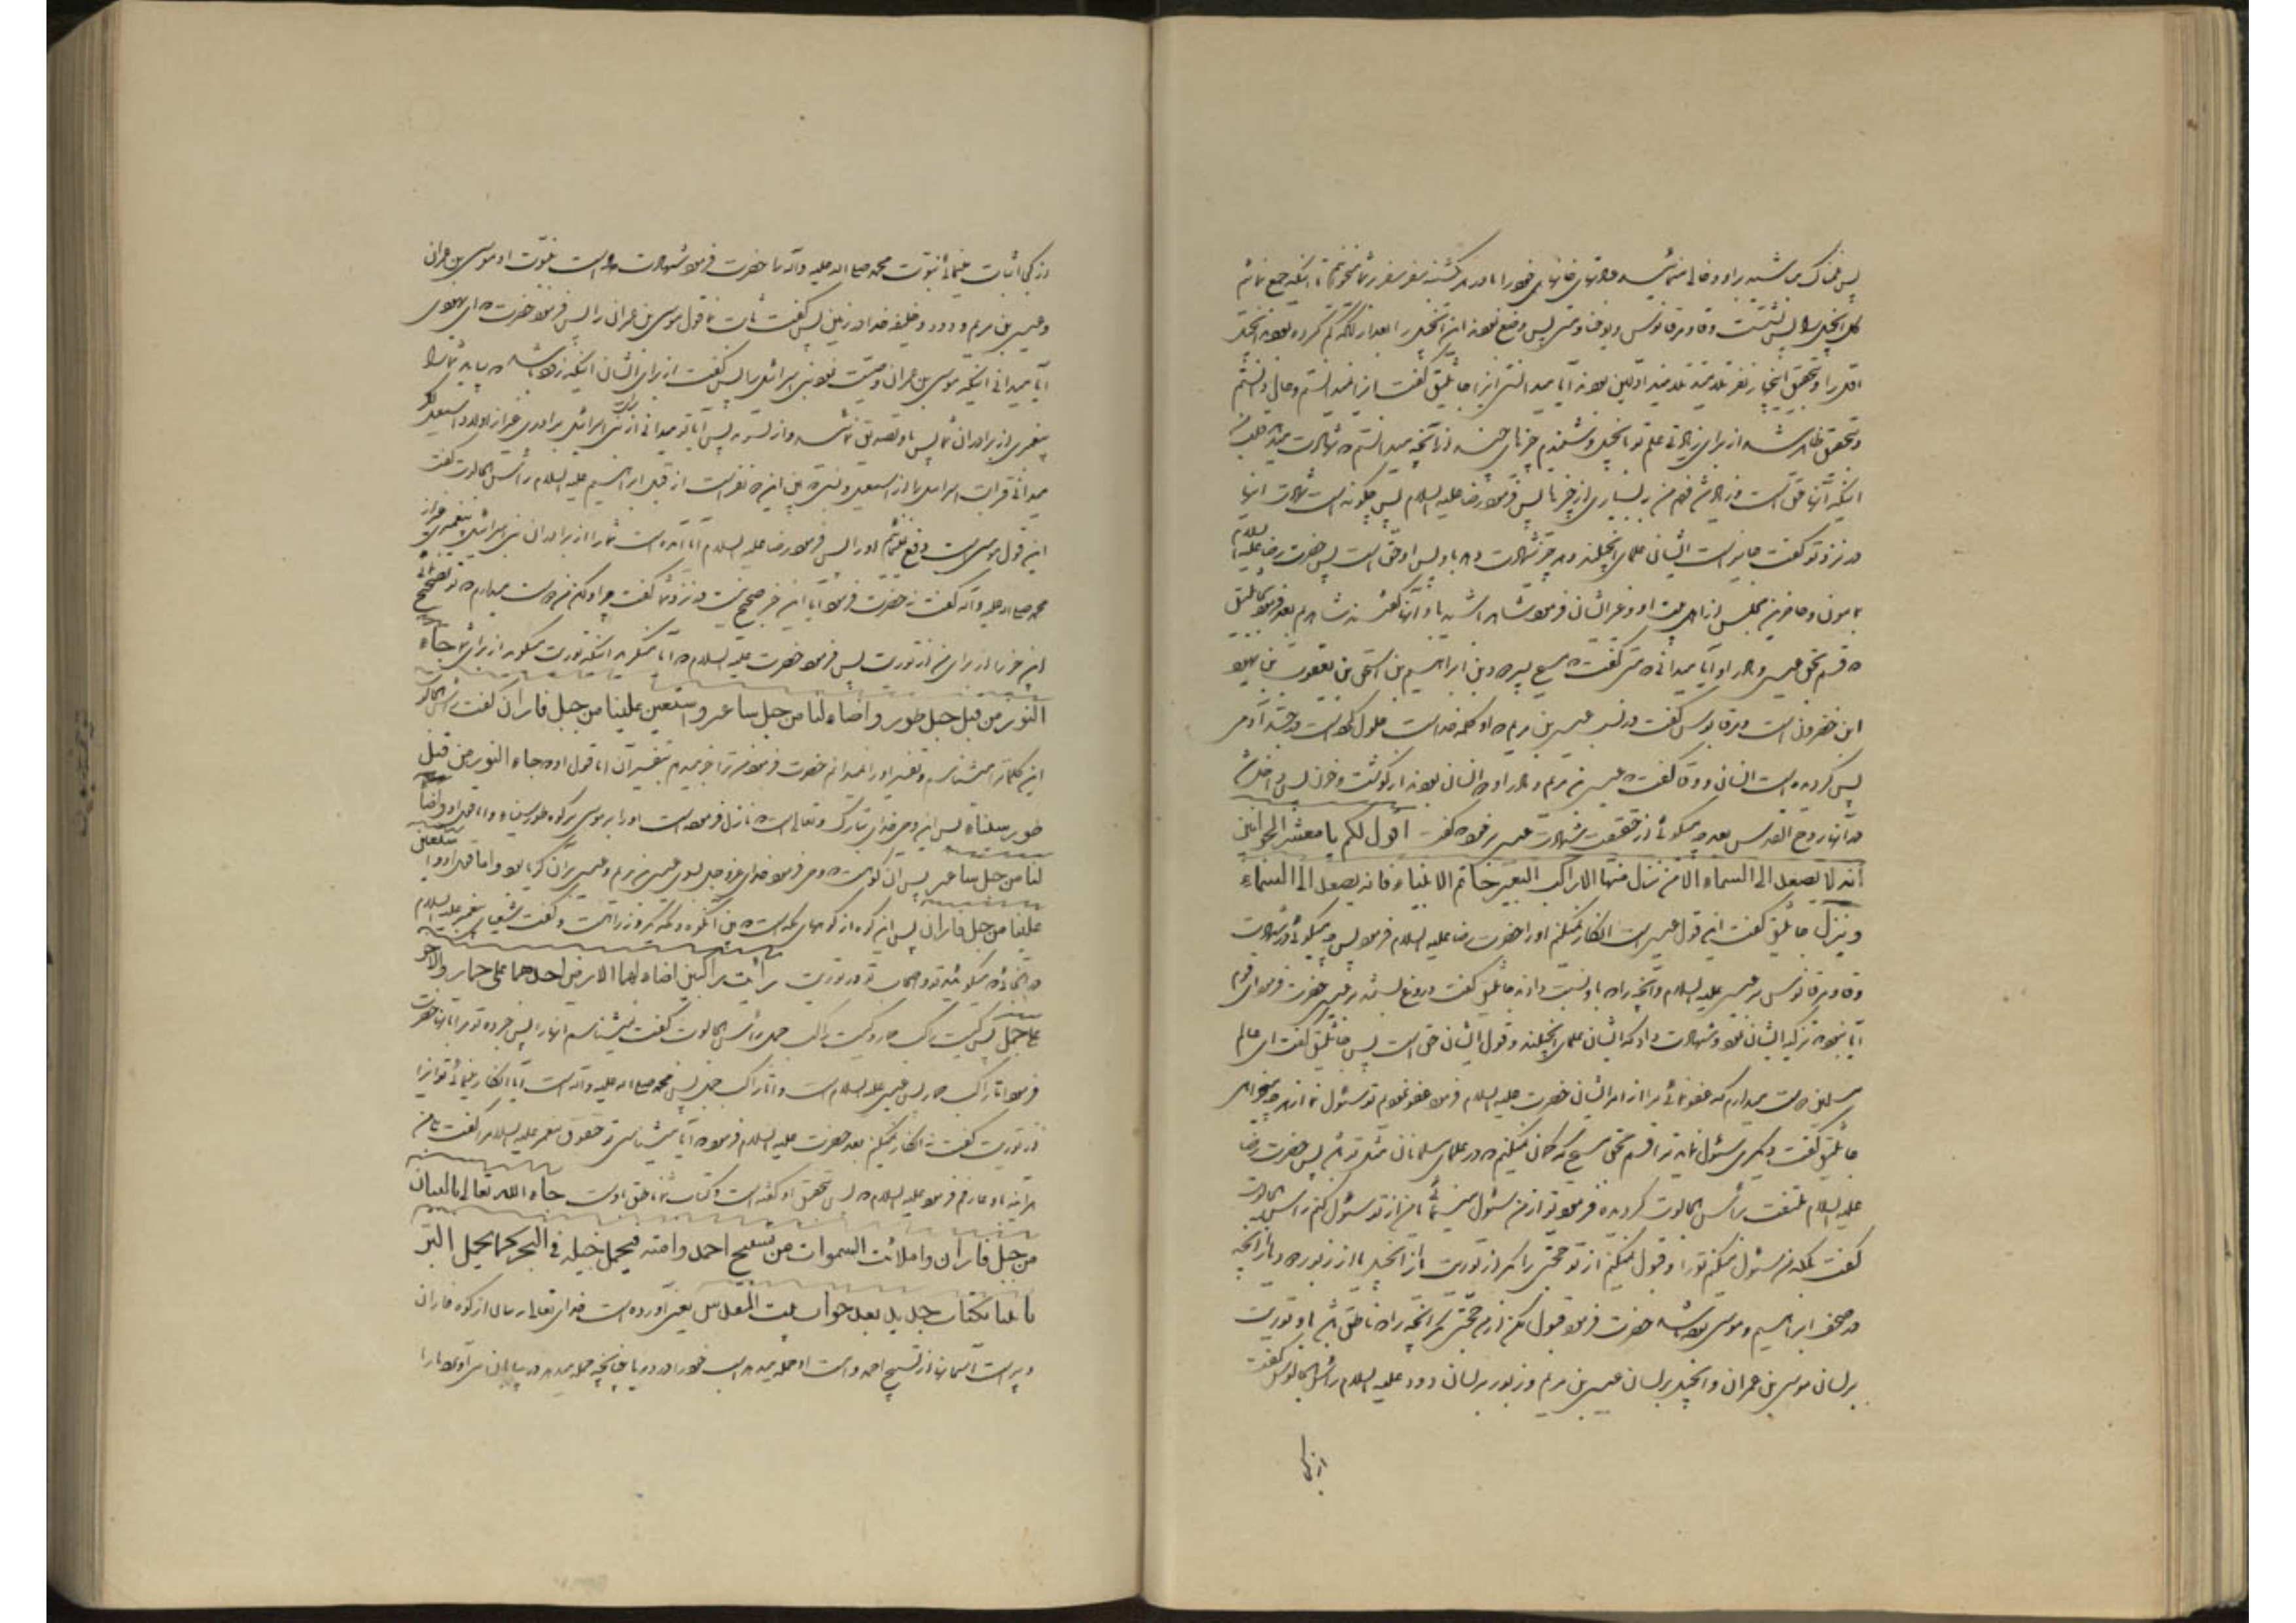 پس غمناک مباشید براو و خالی منمائید کنایس را
کل انجیل را پس نشست وقا و مرقابوس و یوحنا و متی پس وضع نمودند این انجیل را بعد از آنکه گم کرده بودند انجیل
اول را و بتحقیق اینچهار نفر تلمیذ تلامیذ اولین بودند آیا میدانستی اینرا جاثلیق گفت اینرا نمیدانستم و حال دانستم
و بتحقیق ظاهر شد از برای من زیادتی علم تو بانجیل و شنیدم چیزهای چند از آنچه میدانستم که شهادت میدهد قلب من
اینکه آنها حق است و زیاد شد فهم من ببسیاری از چیزها پس فرمود رضا علیه السلام پس چگونه است شهادت اینها
در نزد تو گفت جایز است ایشان علمای انجیلند و هر چیز شهادت دهند باو پس او حق است پس حضرت رضا علیه السلام
بمامون و حاضرین مجلس از اهل بیت او و غیر ایشان فرمود شاهد باشید باو آنها گفتند شاهدیم بعد فرمود بجاثلیق
که قسم بحق عیسی و مادر او آیا میدانی که متی گفت که مسیح پسر داود بن ابراهیم بن اسحق بن یعقوب بن یهود
ابن خضرون است و مرقابوس گفت در نسب عیسی بن مریم که او کلمه خداست حلول کرده است در جسد آدمی
پس گردیده است انسان و وقا گفت که عیسی بن مریم و مادر او دو انسان بودند از گوشت و خون پس داخل شد
در آنها روح القدس بعد چه میگوئی از حقیقت شهادت عیسی بر خود که گفت اقول لکم یا معشر الحواریین
انه لا یصعد الی السماء الا من نزل منها الا راکب البعیر خاتم الانبیاء فانه یصعد الی السماء
و ینزل جاثلیق گفت این قول عیسی است انکار نمیکنم او را حضرت رضا علیه السلام فرمود پس چه میگوئی در شهادت
وقا و مرقابوس بر عیسی علیه السلام و آنچه را که باو نسبت دادند جاثلیق گفت دروغ بستند بر عیسی حضرت فرمود ای قوم
آیا نبود که تزکیه ایشان نمود و شهادت داد که ایشان علمای انجیلند و قول ایشان حق است پس جاثلیق گفت ای عالم
مسلمین دوست میدارم که عفو نمائی مرا از امر ایشان حضرت علیه السلام فرمود عفو نمودم تو سئوال نما از هر چه میخواهی
جاثلیق گفت دیگری سئوال نماید ترا قسم بحق مسیح که گمان نمیکنم که در علمای مسلمانان مثل تو باشد پس حضرت رضا
علیه السلام ملتفت براس الجالوت گردیده فرمود تو از من سئوال مینمائی یا من از تو سئوال کنم راس الجالوت
گفت بلکه من سئوال میکنم تو را و قبول نمیکنم از تو حجتی را مگر از توریت یا از انجیل یا از زبور داود یا از آنچه
در صحف ابراهیم و موسی بوده باشد حضرت فرمود قبول مکن از من حجتی مگر آنچه را که ناطق باشد باو توریت
بر لسان موسی بن عمران و انجیل بر لسان عیسی بن مریم و زبور بر لسان داود علیه السلام راس الجالوت گفت
از کجا
از کجا اثبات مینمائی نبوت محمد صلی الله علیه و آله را حضرت فرمود شهادت داده است بنبوت او موسی بن عمران
و عیسی بن مریم و داود خلیفه خدا در زمین پس گفت ثابت نما قول موسی بن عمران را پس فرمود حضرت که ای یهودی
آیا میدانی اینکه موسی بن عمران وصیت نمود بنی اسرائیل را پس گفت از برای ایشان اینکه زود باشد که بیاید شما را
پیغمبری از برادران شما پس باو تصدیق نمائید و از او بشنوید پس آیا تو میدانی از برای بنی اسرائیل برادری غیر از اولاد اسمعیل اگر
میدانی قرابت اسرائیل را از اسمعیل و نسبتی که بین این دو نفر است از قبل ابراهیم علیه السلام راس الجالوت گفت
این قول موسی است دفع نمیکنیم او را پس فرمود رضا علیه السلام آیا آمده است شما را از برادران بنی اسرائیل پیغمبری غیر از
محمد صلی الله علیه و آله گفت نه حضرت فرمود آیا این خبر صحیح نیست در نزد شما گفت چرا ولکن من دوست میدارم که تو تصحیح نمائی
این خبر را از برای من از توریت پس فرمود حضرت علیه السلام که آیا منکری اینکه توریت میگوید از برای شما جاء
النور من قبل جبل طور و اضاء لنا من جبل ساعیر و استعلن علینا من جبل فاران گفت راس الجالوت
این کلمات را میشناسم و تفسیر او را نمیدانم حضرت فرمود من ترا خبر میدهم بتفسیر آن اما قول او که جاء النور من قبل
طور سیناء پس این وحی خدای تبارک و تعالی است که نازل فرموده است او را بر موسی بر کوه طور سیناء و اما قول او و اضاء
لنا من جبل ساعیر پس آن کوهیست که وحی فرمود خدای عز و جل بسوی عیسی بن مریم و عیسی بر آن کوه بود و اما قول او و استعلن
علینا من جبل فاران پس این کوه از کوههای مکه است که بین آن کوه و مکه یکروزه راهست و گفت شعیا پیغمبر علیه السلام
در آنجا که میگوئید تو و اصحاب تو در توریت رأیت راکبین اضاء لهما الارض احدهما علی حمار و الاخر
علی جمل پس کیست راکب حمار و کیست راکب جمل راس الجالوت گفت نمیشناسم آنها را پس خبر ده تو مرا بآنها حضرت
فرمود اما راکب حمار پس عیسی علیه السلام است و اما راکب جمل پس محمد صلی الله علیه و آله است آیا انکار مینمائی تو اینرا
از توریت گفت نه انکار نمیکنم بعد حضرت علیه السلام فرمود که آیا میشناسی تو حقوق پیغمبر علیه السلام را گفت من
هر آینه باو عارفم فرمود علیه السلام که پس بتحقیق او گفته است و کتاب شما ناطق اوست جاء الله تعالی بالبیان
من جبل فاران و املأت السموات من تسبیح احمد و امته یحمل خیله فی البحر کما یحمل البر
یاتینا بکتاب جدید بعد خراب بیت المقدس یعنی آورده است خدای تعالی بیان از کوه فاران
و پر است آسمانها از تسبیح احمد و امت او حمله میدهد اسب خود را در دریا چنانچه حمله میدهد در بیابان می آورد ما را